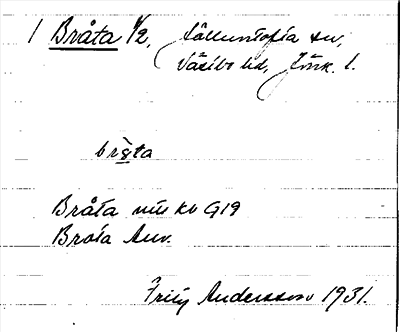 1 Bråta 1/2, Källuntofta sn,
Västbo hd, Jönk. l.
bråta
Bråta niu kv G19
Brota Anv.
Fritz Andersson 1931.